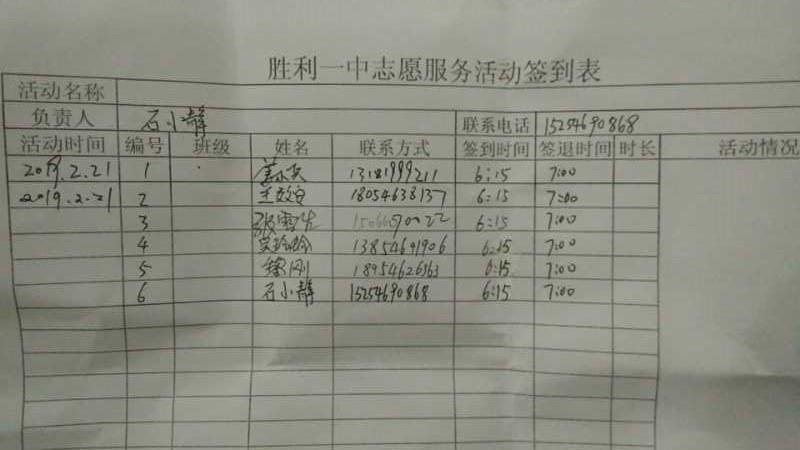 胜利一中志愿服务活动签到表
活动名称
负责人 石小静 联系电话 15254690868
活动时间 编号 班级 姓名 联系方式 签到时间 签退时间 时长 活动情况
2019.2.21 1 13181999211 6:15 7:00
2019.2.21 2 18054638137 6:15 7:00
3 张雪 6:15 7:00
4 13854691906 6:15 7:00
5 刚 18954626363 6:15 7:00
6 石小静 15254690868 6:15 7:00